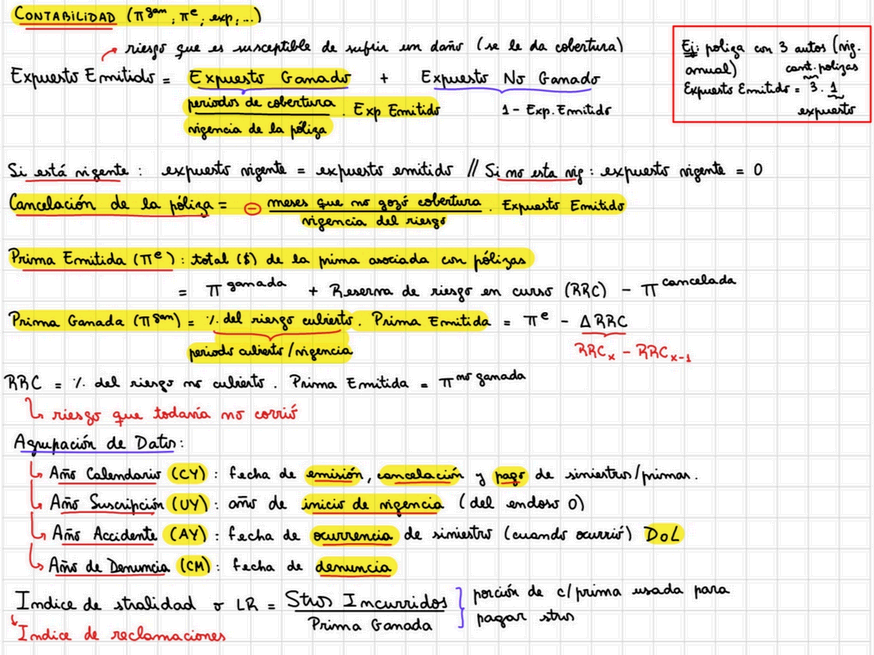 CONTABILIDAD (π^gan, π^e, exp, ...)
riesgo que es susceptible de sufrir un daño (se le da cobertura)
Expuesto Emitido = Expuesto Ganado + Expuesto No Ganado
periodos de cobertura / vigencia de la póliza . Exp Emitido
1 - Exp. Emitido
Ej: poliza con 3 autos (vig.
anual) cant. polizas
Expuesto Emitido = 3 . 1
expuesto
Si está vigente : expuesto vigente = expuesto emitido // Si no esta vig : expuesto vigente = 0
Cancelación de la póliza = - meses que no gozó cobertura / vigencia del riesgo . Expuesto Emitido
Prima Emitida (π^e) : total ($) de la prima asociada con pólizas
= π^ganada + Reserva de riesgo en curso (RRC) - π^cancelada
Prima Ganada (π^gan) = % del riesgo cubierto . Prima Emitida = π^e - Δ RRC
periodo cubierto/vigencia
RRC_x - RRC_x-1
RRC = % del riesgo no cubierto . Prima Emitida = π^no ganada
riesgo que todavía no corrió
Agrupación de Datos:
Año Calendario (CY) : fecha de emisión, cancelación y pago de siniestros/primas.
Año Suscripción (UY) : año de inicio de vigencia (del endoso 0)
Año Accidente (AY) : fecha de ocurrencia de siniestro (cuando ocurrió) DoL
Año de Denuncia (CM) : fecha de denuncia
Indice de stralidad o LR = Stros Incurridos / Prima Ganada
porción de c/prima usada para
pagar stros
Indice de reclamaciones